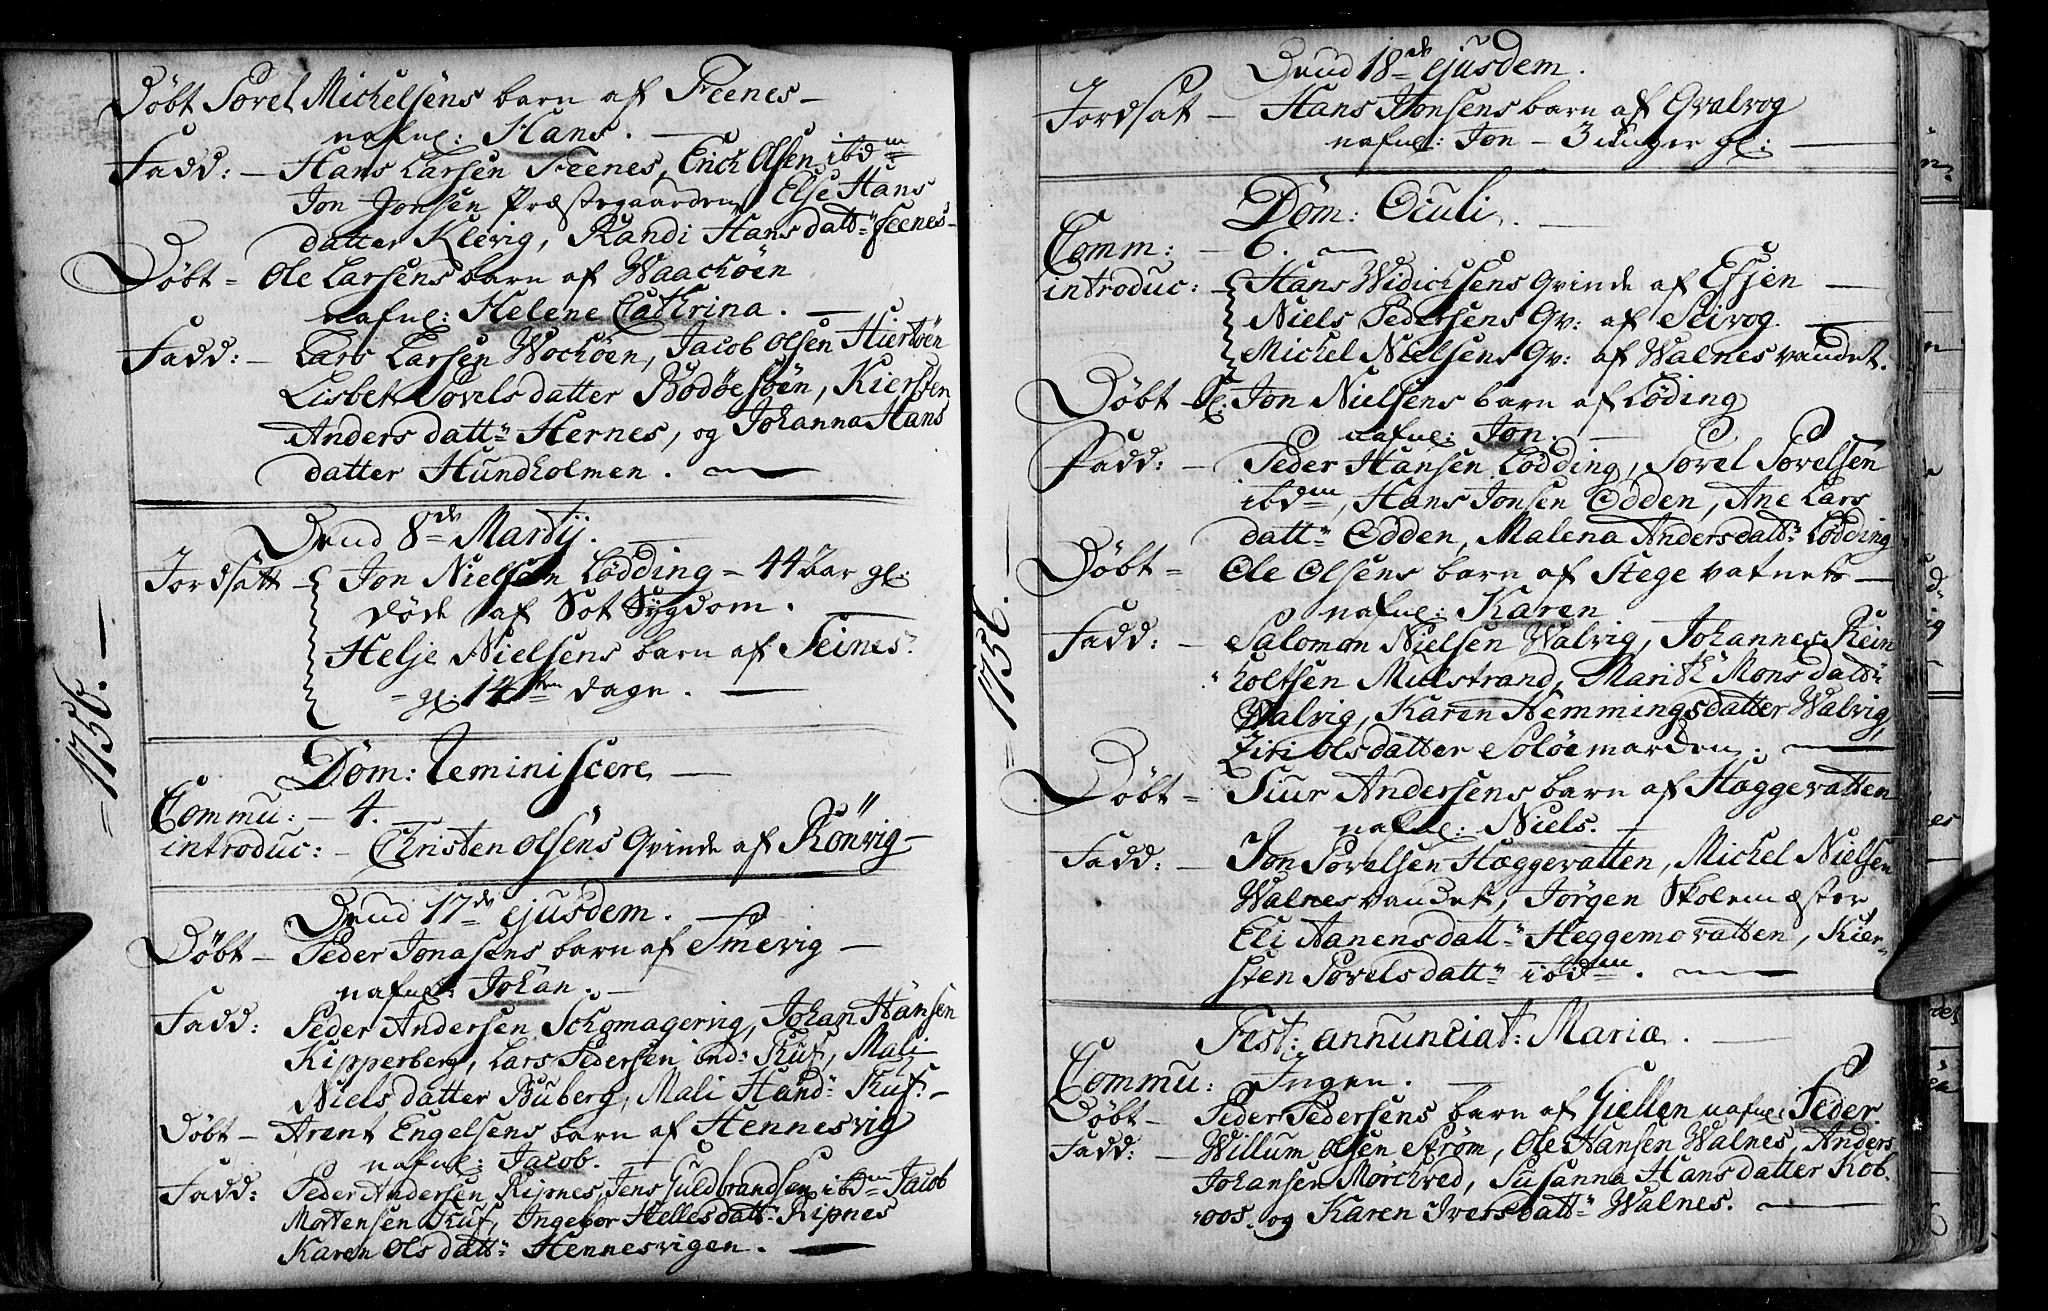 Døbt Povel Michelsens barn af Feenes –
nafnl: Hans. –
Fadd: – Hans Larsen Feenes, Erich Olsen ibdm
Jon Jonsen Præstegaarden, Else Hans
datter Klevig, Randi Hansdattr Feenes –
Døbt – Ole Larsens barn af Waachøen
nafnl: Helene Cathrina. –
Fadd: – Lars Larsen Wochøen, Jacob Olsen Hiertøen
Lisbet Povelsdatter Bodøesøen, Kiersten
Anders dattr Hernes, og Johanna Hans
datter Hundholmen. –
1756. –
Dend 8de Martij.
Jordsatt – Jon Nielsen Lødding – 44 Aar gl:
døde af Sot Sygdom.
Helje Nielsens barn af Seines.
– gl: 14ten dage. –
Dom: Reminiscere –
Commu: – 4.
introduc: – Christen Olsens Qvinde af Rönvig –
Dend 17de ejusdem.
Døbt – Peder Jonasens barn af Smevig –
nafnl: Johan. –
Fadd: Peder Andersen Schomagervig, Johan Hansen
Kipperberg, Lars Pedersen ind: Skuf, Mali
Niels datter Buberg, Mali Hansd: Skuf. –
Døbt – Arent Engelsens barn af Hennesvig
nafnl: Jacob. –
Fadd: Peder Andersen Ripnes, Jens Guldbrandsen ibdm Jacob
Mortensen Skuf, Ingebor Hellesdattr Ripnes
Karen Olsdattr Hennesvigen. –
Dend 18de ejusdem.
Jordsat – Hans Jonsens barn af Qvalvog
nafnl: Jon – 3 uuger gl: –
Dom: Oculi. –
Comm: – 6. –
introduc: – Hans Widichsens Qvinde af Essjen –
Niels Pedersens Qv: af Seivog. –
Michel Nielsens Qv: af Walnesvandet.
Døbt – Sl. Jon Nielsens barn af Løding
nafnl: Jon. –
Fadd: – Peder Hansen Lødding, Povel Povelsen
ibdm, Hans Jonsen Odden, Ane Lars
dattr Odden, Malena Andersdattr Lødding
1756. –
Døbt – Ole Olsens barn af Stegevatnet –
nafnl: Karen
Fadd: – Salomon Nielsen Walvig, Johannes Rein
holtsen Mulstrand, Marith Monsdattr
Walvig, Karen Hemmingsdatter Walvig,
Ziri Olsdatter Soløemarden. –
Døbt – Siur Andersens barn af Hæggevatten
nafnl: Niels. –
Fadd: – Jon Povelsen Hæggevatten, Michel Nielsen
Walnesvandet, Jørgen Skolemæster
Eli Aanensdattr Heggemovatten, Kier-
sten Povelsdattr ibdm. –
Fest: annunciat: Mariæ. –
Commu: Ingen. –
Døbt – Peder Pedersens barn af Giellen nafnl: Peder
Fadd: – Willum Olsen Strøm, Ole Hansen Walnes, Anders
Johansen Mørchved, Susanna Hansdatter Kob
roos og Karen Iversdattr Walnes. –